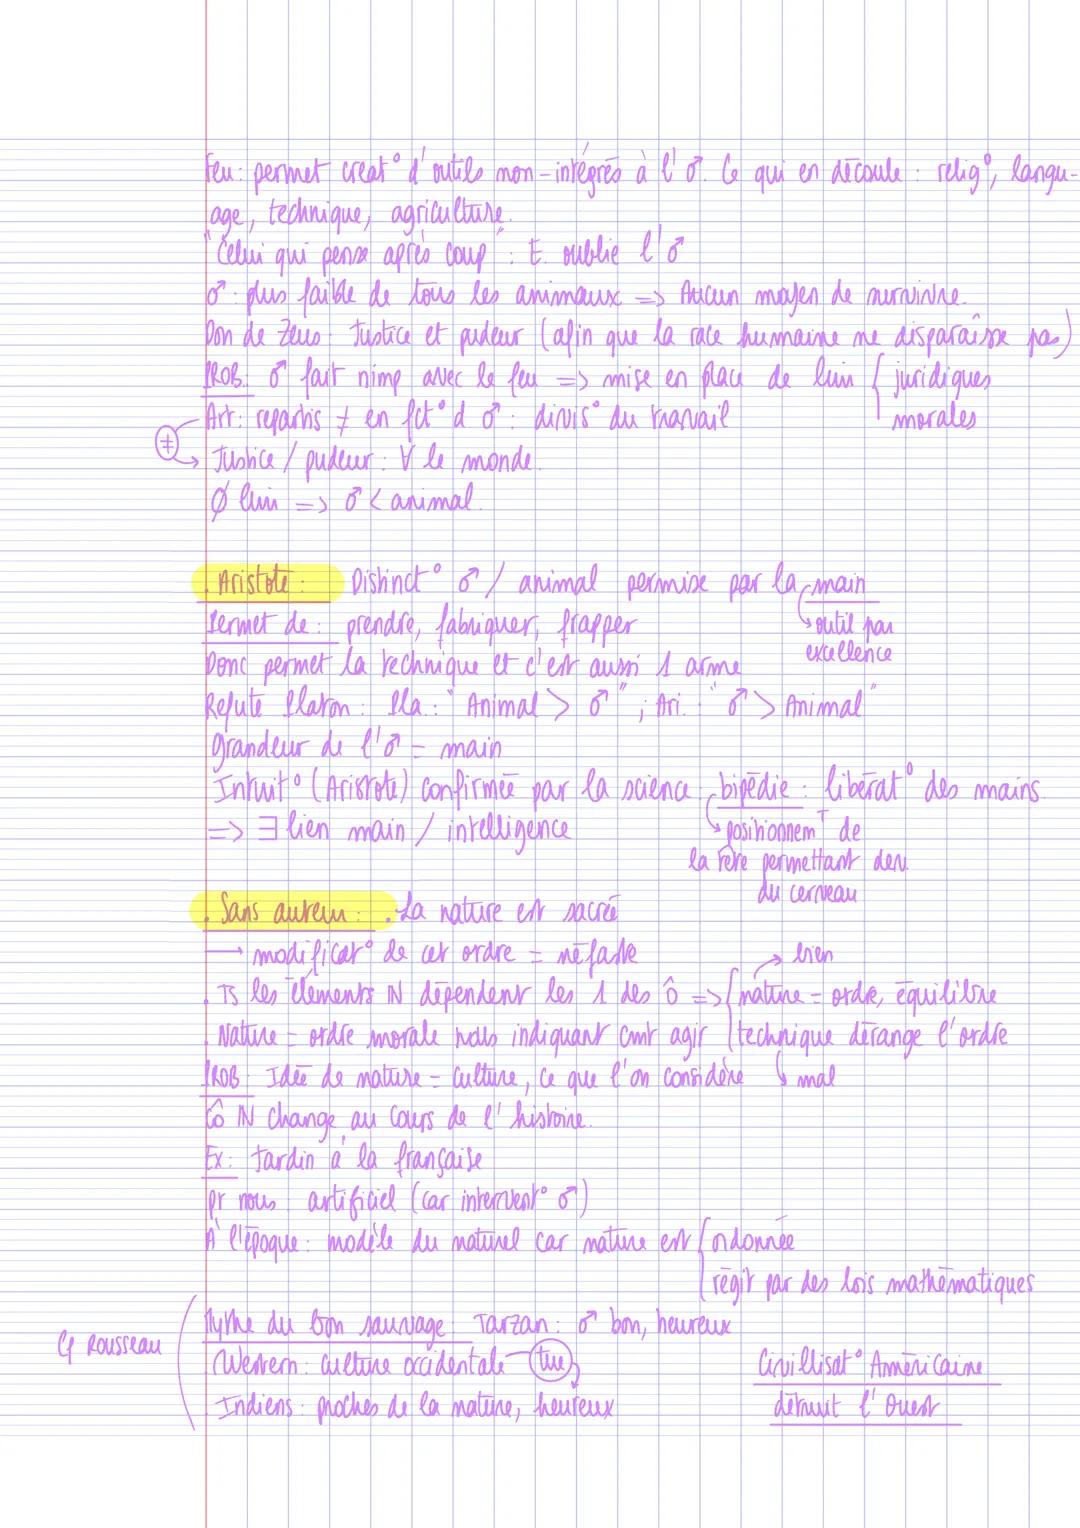 Feu : permet creat° d'outils non-intégrés à l'♂. Ce qui en découle : relig°, langu-
age, technique, agriculture.
"Celui qui pense après coup" : E. oublie l'♂
♂ : plus faible de tous les animaux => Aucun moyen de survivre.
Don de Zeus : Justice et pudeur (afin que la race humaine ne disparaisse pas)
PROB : ♂ fait nimp avec le feu => mise en place de lim { juridiques
morales
Art : repartis ≠ en fct° d ♂ : divis° du travail
≠
Justice / pudeur : ∀ le monde.
Ø lim => ♂ < animal.
. Aristote : Distinct° ♂ / animal permise par la main
Permet de : prendre, fabriquer, frapper
outil par
excellence
Donc permet la technique et c'est aussi 1 arme
Refute Platon : Pla. : "Animal > ♂" ; Ari. : "♂ > Animal"
grandeur de l'♂ = main
Intuit° (Aristote) confirmée par la science. bipédie : libérat° des mains.
=> ∃ lien main / intelligence
positionnemT de
la tête permettant dev.
du cerveau
. Sans auteur : . La nature est sacrée
→ modificat° de cet ordre = néfaste
. Ts les éléments N dépendent les 1 des ô => { nature = ordre, équilibre → bien
. Nature = ordre morale nous indiquant cmt agir
technique dérange l'ordre
mal
PROB : Idée de nature = culture, ce que l'on considère
Cô N change au cours de l'histoire.
Ex : Jardin à la française
pr nous : artificiel (car intervent° ♂)
À l'époque : modèle du naturel car nature est { ordonnée
régit par des lois mathématiques
Cf Rousseau
Mythe du bon sauvage : Tarzan : ♂ bon, heureux
Western : culture occidentale tue
. Indiens : proches de la nature, heureux
Civillisat° Américaine
détruit l'Ouest